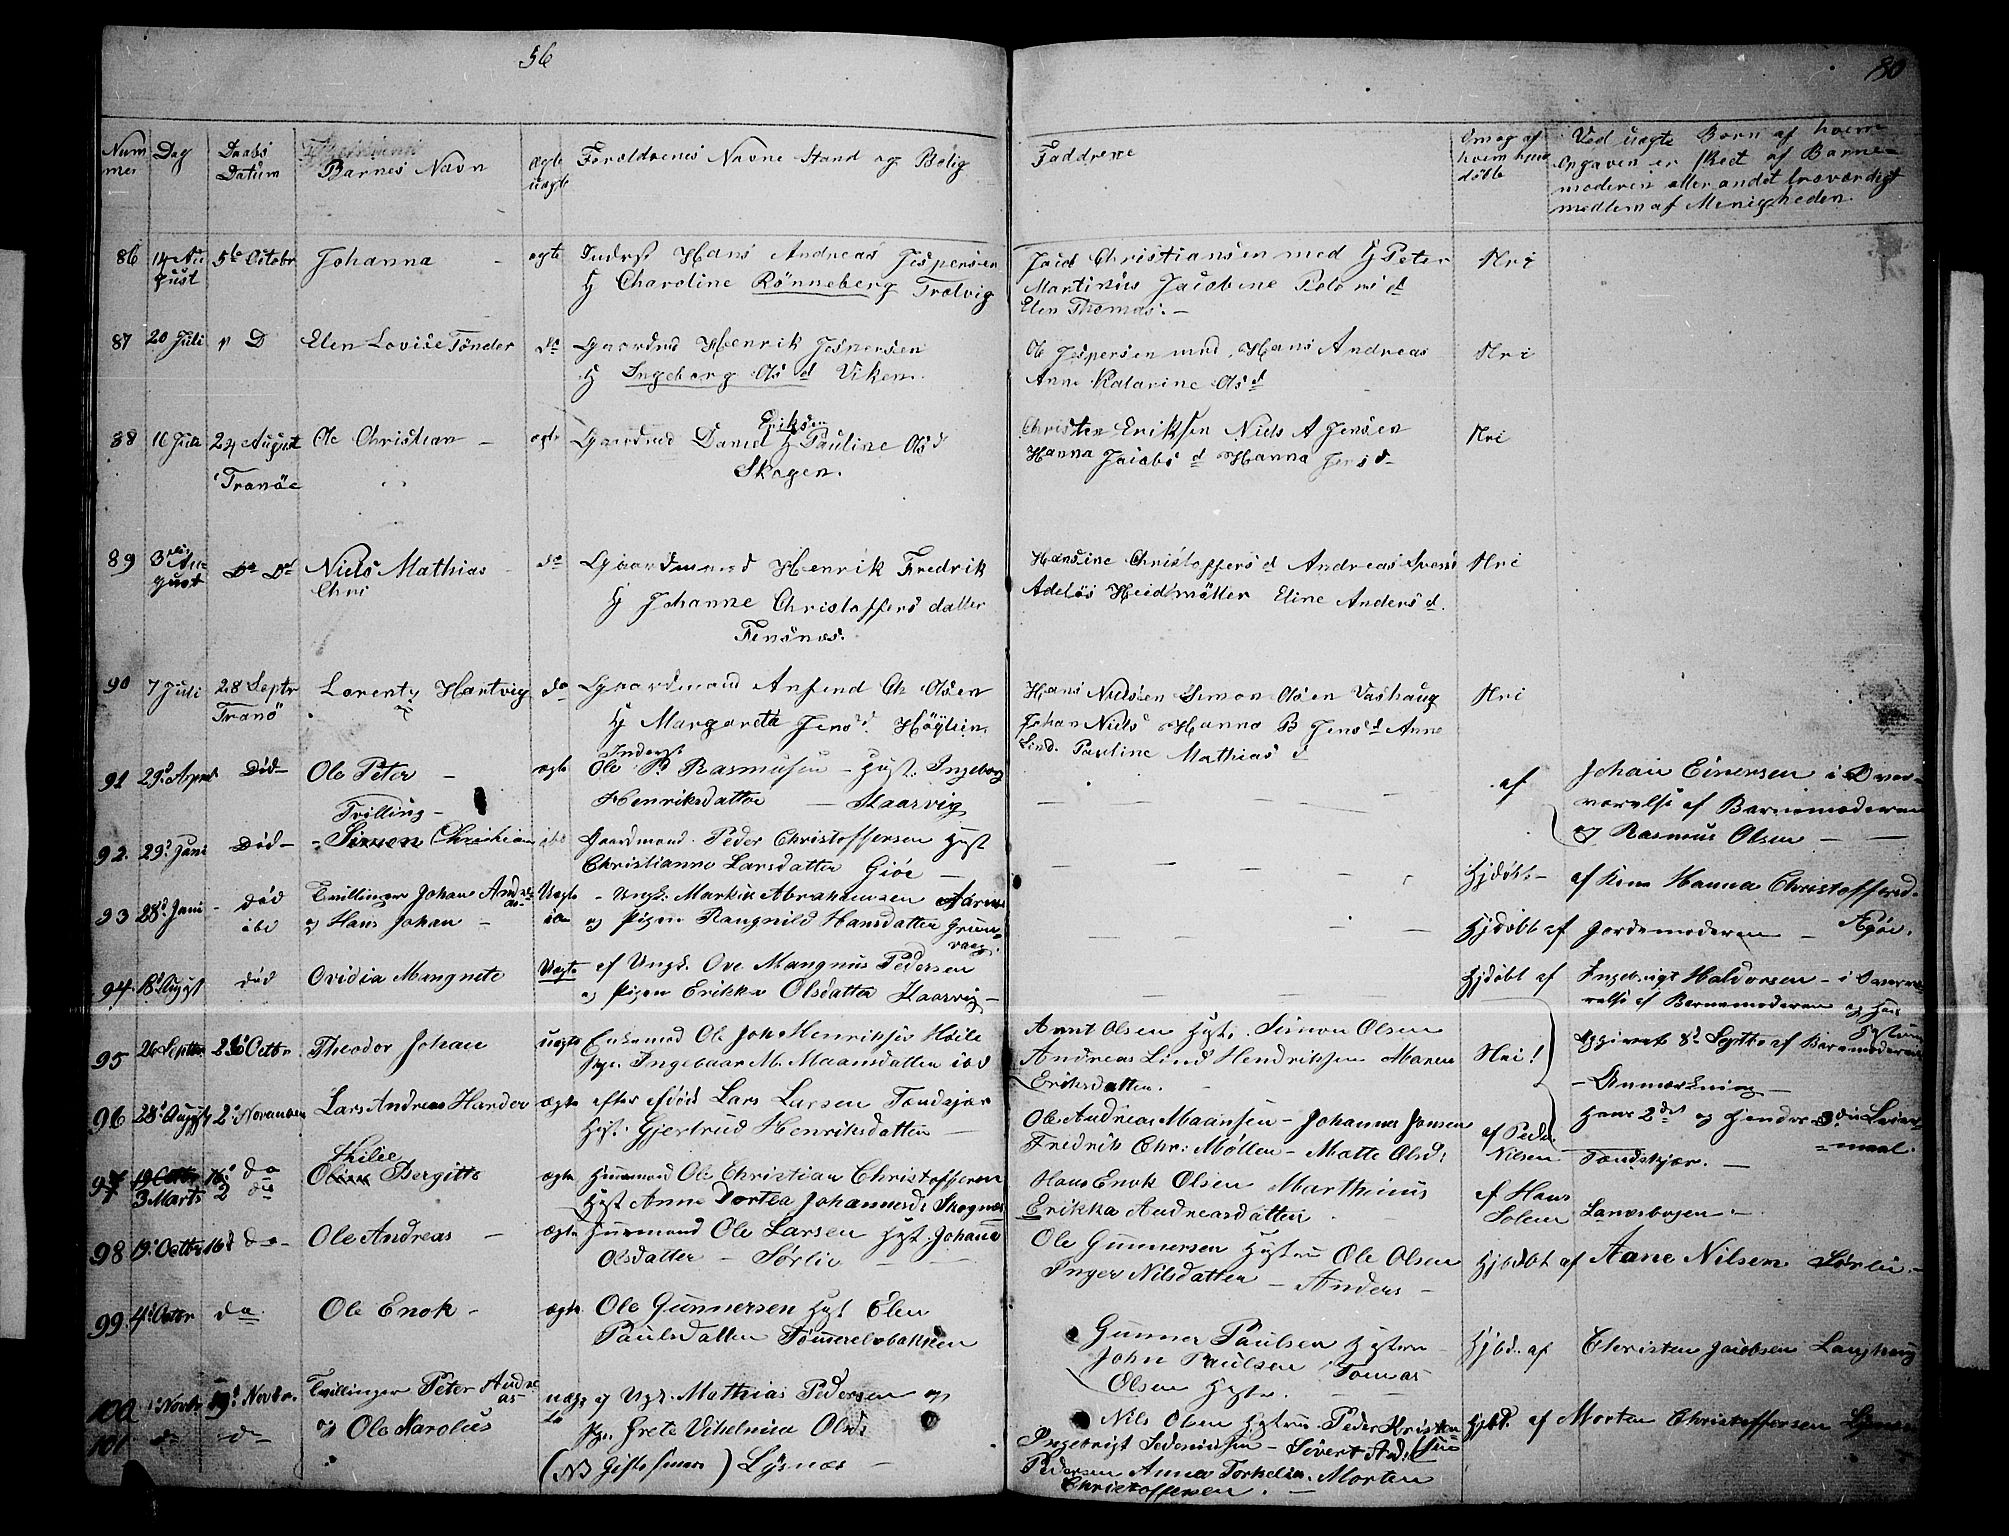 56
80
Num mer
Dag
Daabs Datum
Barnes Navn
ægte uægte
Foreldrenes Navne Stand og Bolig
Faddrene
hvem døbt
Ved uægte Børn af hvem
Opgaven er skeet af Barne=
moderen eller andet troværdigt
medlem af Menigheden.
86 14 August 5te Octobr Johanna - ægte Inderst Hans Andreas Jespersen
H Charoline Rönneberg Trælvig
Christiansen med H Peter
Martinus Jacobine d
Elen Thomas. -
Kri
87 20 Juli " D Elen Lovise Tönder do Gaardmd Henrik Jespersen
H Ingeborg Ols d Viken.
Ole Jespersen med Hans Andreas
Anne Katarine Ols d
Kri
88 16 Juli 24 August Tranöe Ole Christian - ægte Gaardmd Daniel Eriksen H Pauline Ols d
Skogen.
Christen Eriksen Niels A Jensen
Hanna Jacobs d Hanna Jens d -
Kri
89 3 August Do Do Niels Mathias
Chri
do Gaardmand Henrik Fredrik
H Johanne Christoffers datter
Finsnes.
Hansine Christoffers d Andreas
Heidmöller Eline Anders d.
Kri
90 7 Juli 28 Septr Tranö Hartvig do Gaardmand Ch Olsen
H Margareta Jens d. Höglien.
Hans Nielsen Simon Olsen Vashaug
Johan Niels Hanna B Jens d Anne
Lind. Pauline Mathias d
Kri
91 29 April Död- Ole Peter -
ægte Inderst Ole P. Rasmusen - Hust. Ingeborg
Henriksdatter - Kaarvig
af Johan Einersen i Over-
værelse af Barnemoderen
og Rasmus Olsen -
Tvilling-
92. 29. Juni Död- Simon Christian Gaardmand. Peder Christoffersen Hust
Christianna Larsdatter Giöe -
Hjdöbt- af Kone Hanna Christoffersd.
93 28. Juni - död Tvillinger Johan Andreas
og Hans Johan -
Uægte - Ungk. Martin Abrahamsen
og Pigen Rangnild Hansdatter
Hjdöbt af Jordemoderen -
94. 18 August död Ovidia Mangnete Uægte af Ungk. Ove Mangnus Pedersen
og Pigen Erikka Olsdatter Kaarvig-
Hjdöbt af Ingebrigt Halvorsen - i Overvæ-
relse af Barnemoderen og Hans
95 26 Septbr 26 Octbr Theodor Johan uægte Enkemd Ole Joh Henriksen
Pige. Ingebaar M. Maansdatter ibd
Arnt Olsen Hust. Simon Olsen
Andreas Lind Hendriksen Maren
Eriksdatter. -
Kri!
Opgivet 8de Septbr af Barnemoderen
- Anmærkning -
Hans 2det og hendes 3die Leier-
=maal.
96 28 August 2 November Lars Andreas Harder ægte efter afdöd Lars Larsen Tandsjær
Hust. Gjertrud Henriksdatter -
Ole Andreas Maansen - Johannes Jonsen
Fredrik Chr: Möller - Matte Olsd:
af Peder Nilsen Tandskjær. -
97 19 Octbr 16 do
3 Marts 2 do
Thilee
Oline Bergitte ægte Huusmand Ole Christian Christoffersen
Hust Anne Dortea Johannesd: Skognes
Hans Enok Olsen Marthinus
Erikka Andreasdatter
af Hans Solem Lanesbogen -
98 19. Octbr 16 do- Ole Andreas - ægte Huusmand Ole Larsen Hst. Johana
Olsdatter - Sörlie -
Ole Gunnersen Hustru Ole Olsen
Inger Nilsdatter - Anders -
Hjdöbt af Aane Nilsen Sörlie. -
99 4 Octbr do. Ole Enok - ægte Ole Gunnersen Hst Elen
Paulsdatter Tömmerelvbakken
Gunner Paulsen Hustru
John Paulsen Tomas
Olsen Hustr.
Hjbd. af Christen Jacobsen Langhaug
100 1 Novbr 19 Novbr. Tvillinger Peter Andreas uæg-
te af Ugk. Mathias Pedersen og
101 do do og Ole Karolus Pge. Grete Vilhelmina Olsd:
(NB Gifte senere) Lysnæs -
Nils Olsen Hustru. Peder Kristian
Ingebrigt - Sivert
Pedersen Anna Torkelia. Morten
Christoffersen. -
Hjdbt. af Morten Christoffersen